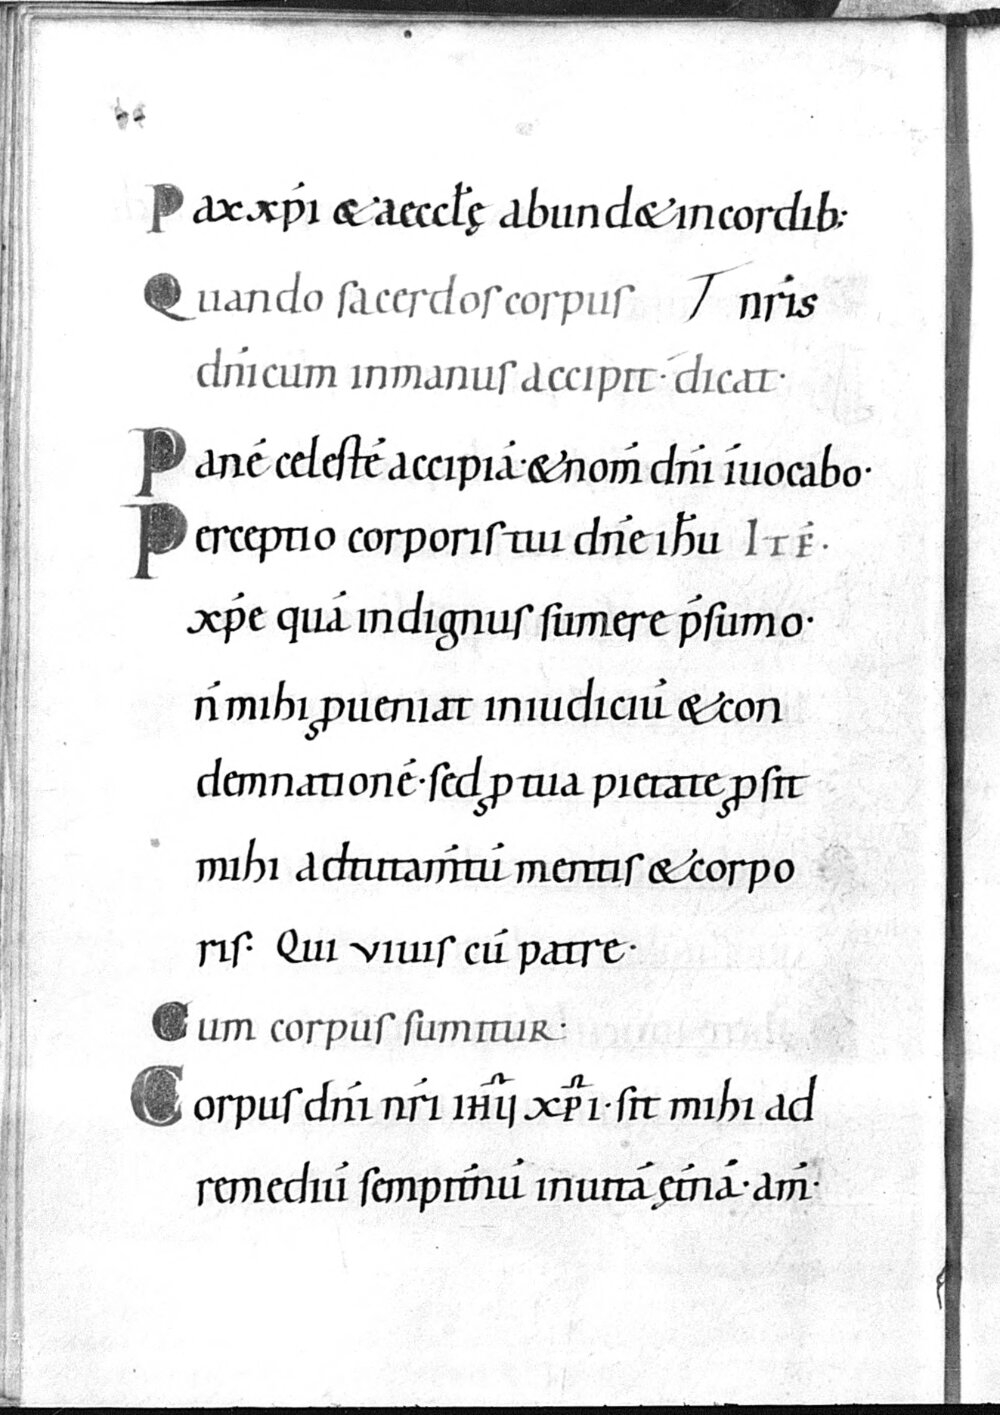 Pax xp̄i & aeccłę abund& in cordib;
Quando sacerdos corpus nr̄is
dn̄icum in manus accipit · dicat ·
Panē celestē accipiā · & nom̄ dn̄i īuocabo ·
Perceptio corporis tui dn̄e ih̄u ITĒ ·
xp̄e quā indignus sumere p̄sumo ·
n̄ mihi ꝓueniat in iudiciū & con
demnationē · sed ꝓ tua pietate ꝓsit
mihi ad tutam̄tū mentis & corpo
ris · Qui viuis cū patre ·
Cum corpus sumitur ·
Corpus dn̄i nr̄i ih̄ū xp̄i · sit mihi ad
remediū sempit̄nū in uitā ęt̄nā · am̄ ·